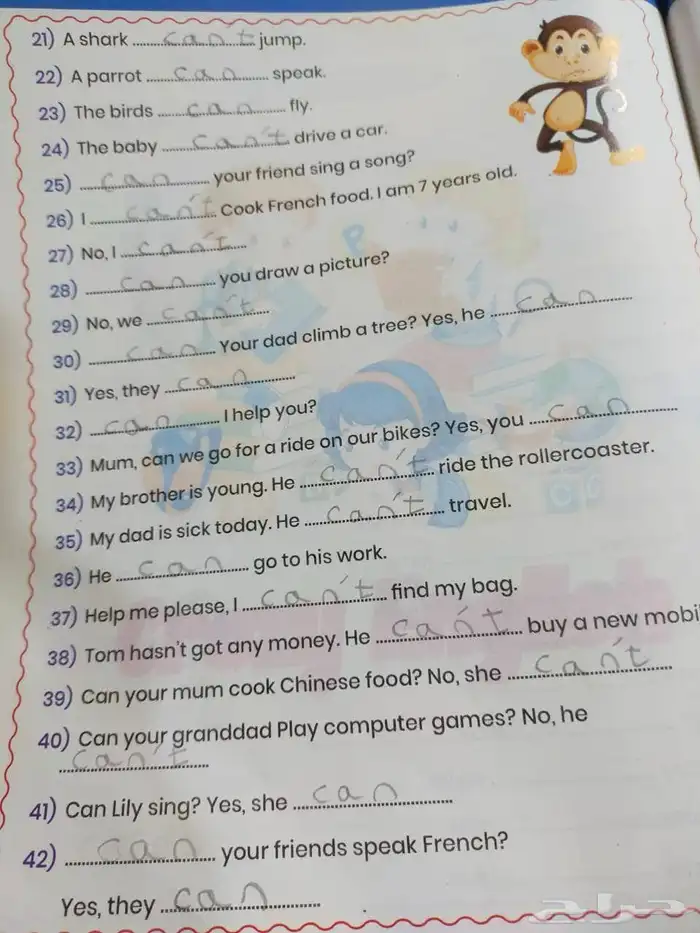 21) A shark ......can't...... jump.
22) A parrot ......can...... speak.
23) The birds ......can...... fly.
24) The baby ......can't...... drive a car.
25) ......can...... your friend sing a song?
26) I ......can't...... Cook French food. I am 7 years old.
27) No, I ......can't......
28) ......can...... you draw a picture?
29) No, we ......can't......
30) ......can...... Your dad climb a tree? Yes, he ......can......
31) Yes, they ......can......
32) ......can...... I help you?
33) Mum, can we go for a ride on our bikes? Yes, you ......can......
34) My brother is young. He ......can't...... ride the rollercoaster.
35) My dad is sick today. He ......can't...... travel.
36) He ......can...... go to his work.
37) Help me please, I ......can't...... find my bag.
38) Tom hasn't got any money. He ......can't...... buy a new mobi
39) Can your mum cook Chinese food? No, she ......can't......
40) Can your granddad Play computer games? No, he
......can't......
41) Can Lily sing? Yes, she ......can......
42) ......can...... your friends speak French?
Yes, they ......can......
حراج